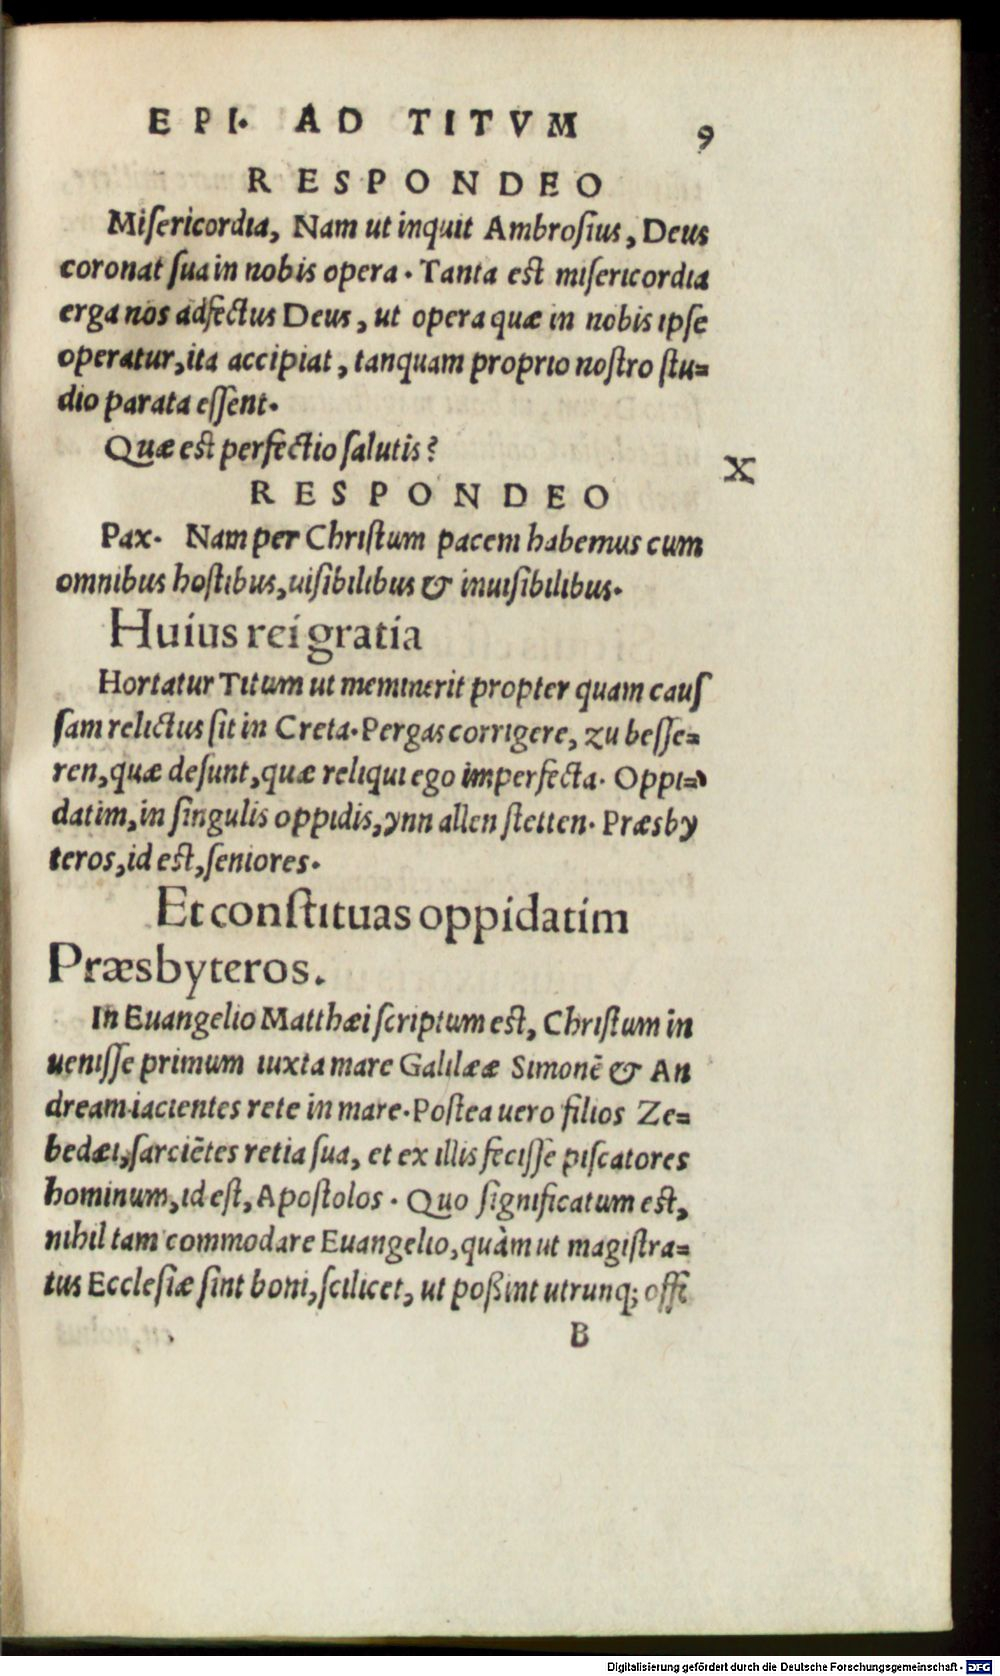 EPI. AD TITVM 9
RESPONDEO
Miſericordia, Nam ut inquit Ambroſius, Deus
coronat ſua in nobis opera. Tanta eſt miſericordia
erga nos adfectus Deus, ut opera quæ in nobis ipſe
operatur, ita accipiat, tanquam proprio noſtro ſtu=
dio parata eſſent.
Quæ eſt perfectio ſalutis?
X
RESPONDEO
Pax. Nam per Chriſtum pacem habemus cum
omnibus hoſtibus, uiſibilibus & inuiſibilibus.
Huius rei gratia
Hortatur Titum ut meminerit propter quam cauſ
ſam relictus ſit in Creta. Pergas corrigere, zu beſſe=
ren, quæ deſunt, quæ reliqui ego imperfecta. Oppi=
datim, in ſingulis oppidis, ynn allen ſtetten. Præsby
teros, id eſt, ſeniores.
Et conſtituas oppidatim
Præsbyteros.
In Euangelio Matthæi ſcriptum eſt, Chriſtum in
ueniſſe primum iuxta mare Galilææ Simonē & An
dream iacientes rete in mare. Poſtea uero filios Ze=
bedæi, ſarciētes retia ſua, et ex illis feciſſe piſcatores
hominum, id eſt, Apoſtolos. Quo ſignificatum eſt,
nihil tam commodare Euangelio, quàm ut magiſtra=
tus Eccleſiæ ſint boni, ſcilicet, ut poßint utrunq; offi
B
Digitalisierung gefördert durch die Deutsche Forschungsgemeinschaft - DFG